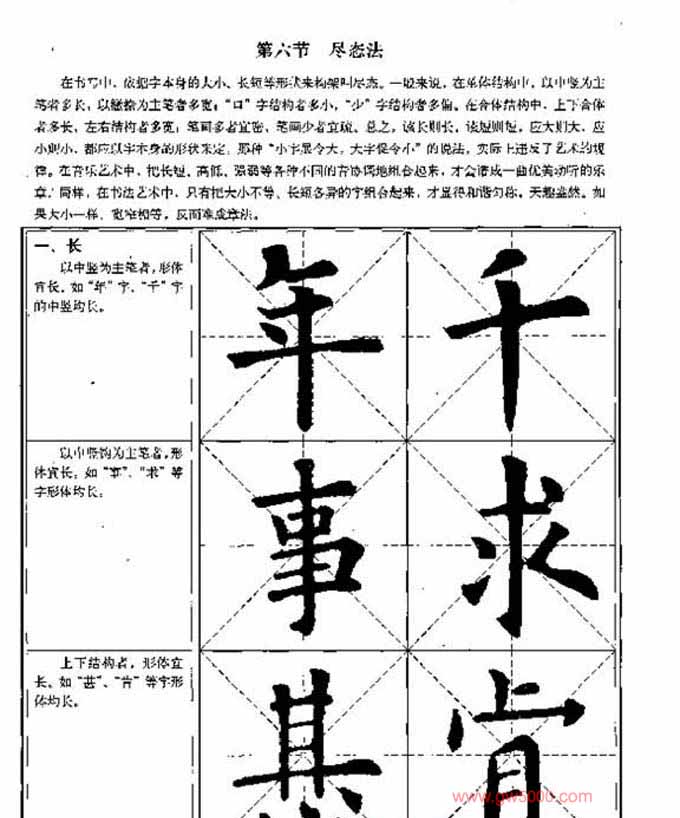 第六节 尽态法
在书写中，依据字本身的大小、长短等形状来构架叫尽态。一般来说，在单体结构中，以中竖为主
笔者多长，以横捺为主笔者多宽；“口”字结构者多小，“少”字结构者多偏。在合体结构中，上下合体
者多长，左右结构者多宽；笔画多者宜密，笔画少者宜疏。总之，该长则长，该短则短，应大则大，应
小则小，都应以字本身的形状来定。那种“小字展令大，大字促令小”的说法，实际上违反了艺术的规
律。在音乐艺术中，把长短、高低、强弱等各种不同的音协调地组合起来，才会谱成一曲优美动听的乐
章。同样，在书法艺术中，只有把大小不等、长短各异的字组合起来，才显得和谐匀称，天趣盎然。如
果大小一样，宽窄相等，反而难成章法。
一、长
以中竖为主笔者，形体
宜长，如“年”字、“千”字
的中竖均长。
年 千
以中竖钩为主笔者，形
体宜长，如“事”、“求”等
字形体均长。
事 求
上下结构者，形体宜
长。如“甚”、“肯”等字形
体均长。
甚 肯
www.gw5000.com